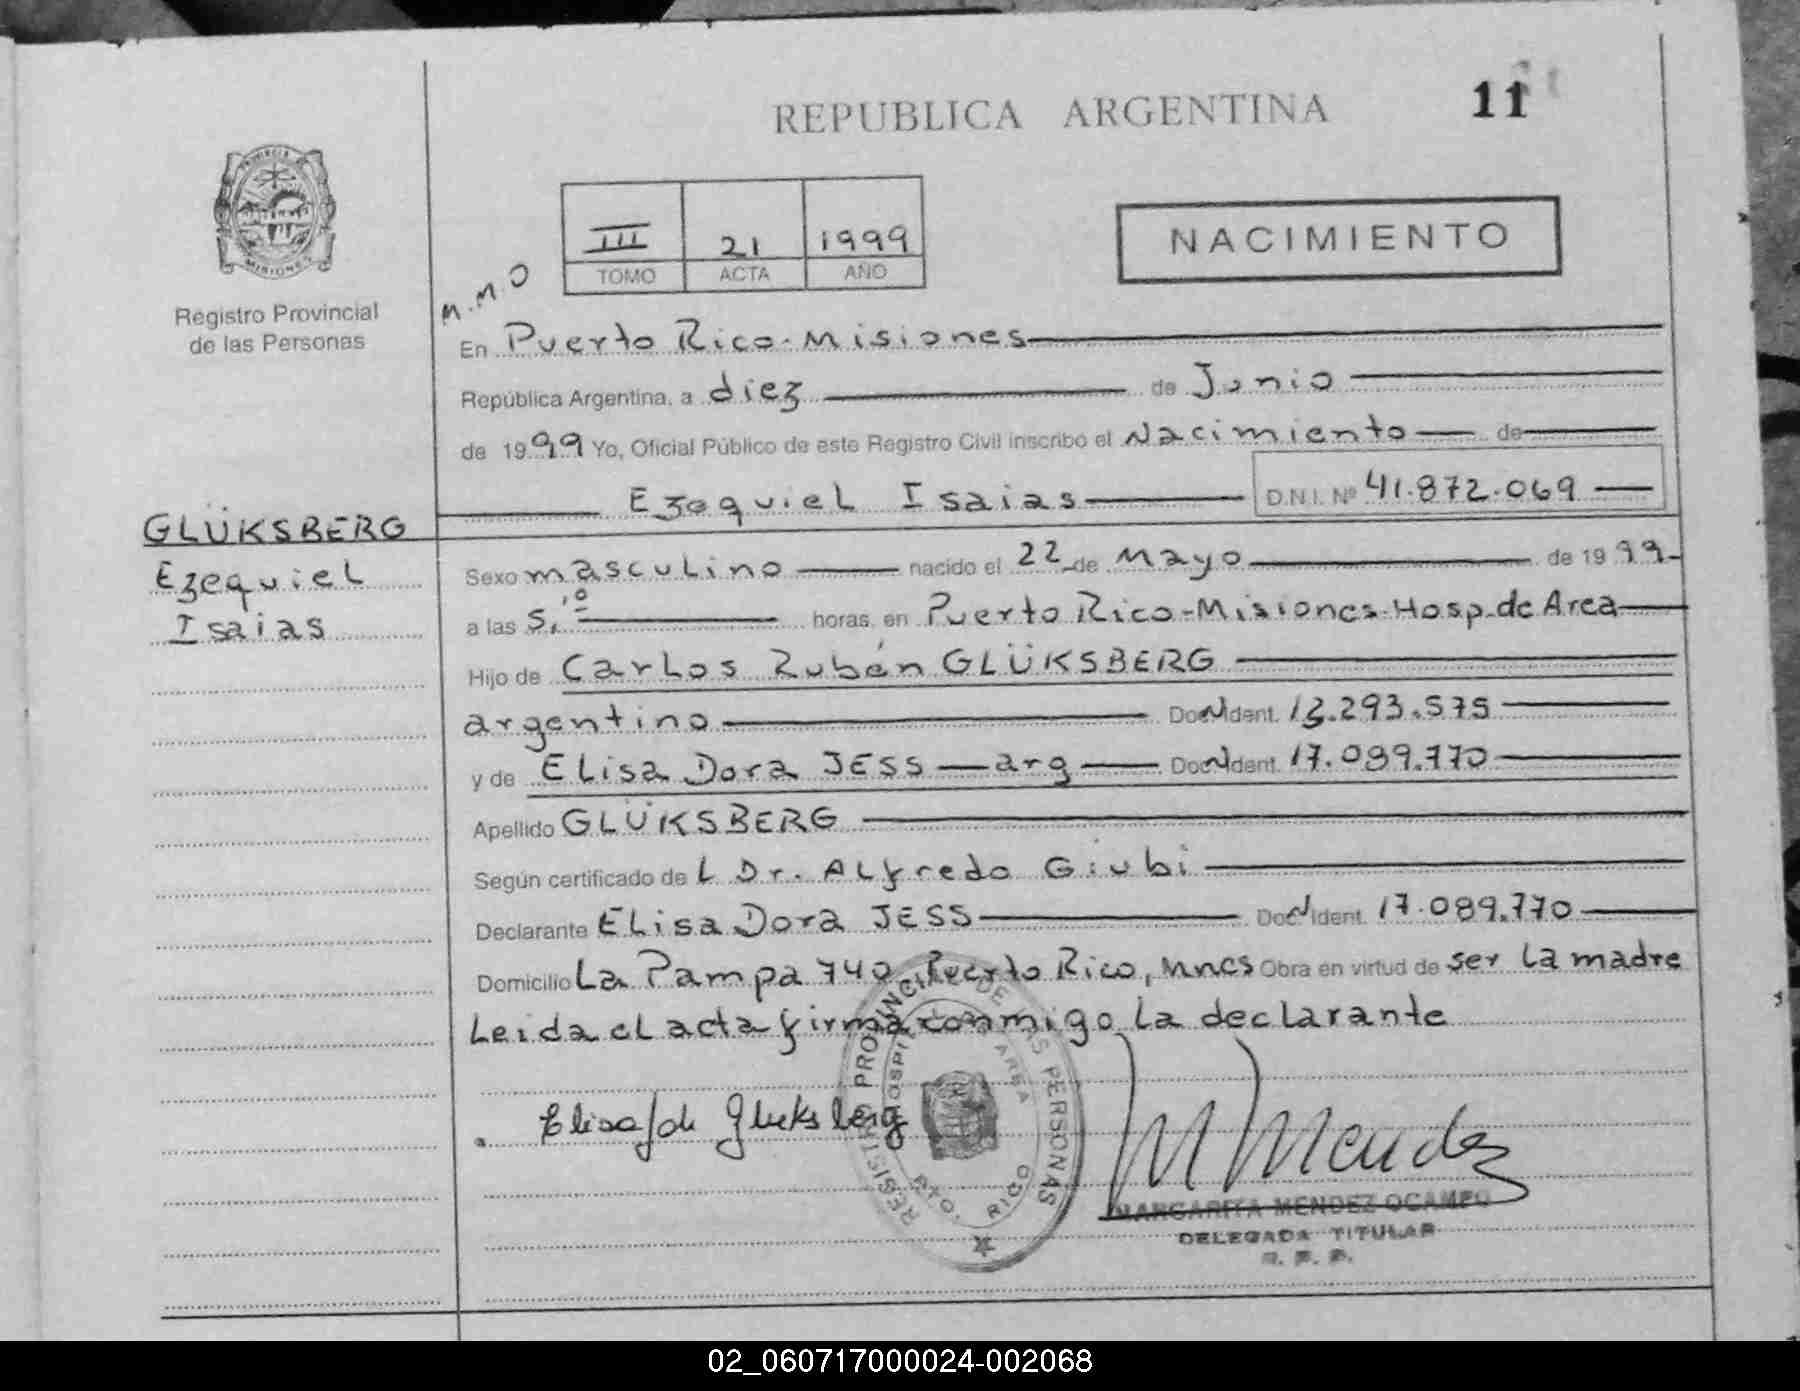 REPUBLICA ARGENTINA
11
PROVINCIA DE
MISIONES
Registro Provincial
de las Personas
III 21 1999
TOMO ACTA AÑO
NACIMIENTO
M.M.O
En Puerto Rico-Misiones
República Argentina, a diez de Junio
de 1999 Yo, Oficial Público de este Registro Civil inscribo el Nacimiento de
Ezequiel Isaias D.N.I. Nº 41.872.069
GLÜKSBERG
Ezequiel
Isaias
Sexo masculino nacido el 22 de Mayo de 1999-
a las 5,'º horas, en Puerto Rico-Misiones-Hosp.de Area
Hijo de Carlos Rubén GLÜKSBERG
argentino Doc Ident. 13.293.575
y de Elisa Dora JESS — arg — Doc Ident. 17.089.770
Apellido GLÜKSBERG
Según certificado del Dr. Alfredo Giubi
Declarante Elisa Dora JESS Doc Ident. 17.089.770
Domicilio La Pampa 740, Puerto Rico, Mnes Obra en virtud de ser la madre
Leida el acta firma conmigo la declarante
Elisa J de Gluksberg
REGISTRO PROVINCIAL DE LAS PERSONAS
HOSPITAL AREA
PTO. RICO
M Mendez
MARGARITA MENDEZ OCAMPO
DELEGADA TITULAR
R. P. P.
02_060717000024-002068